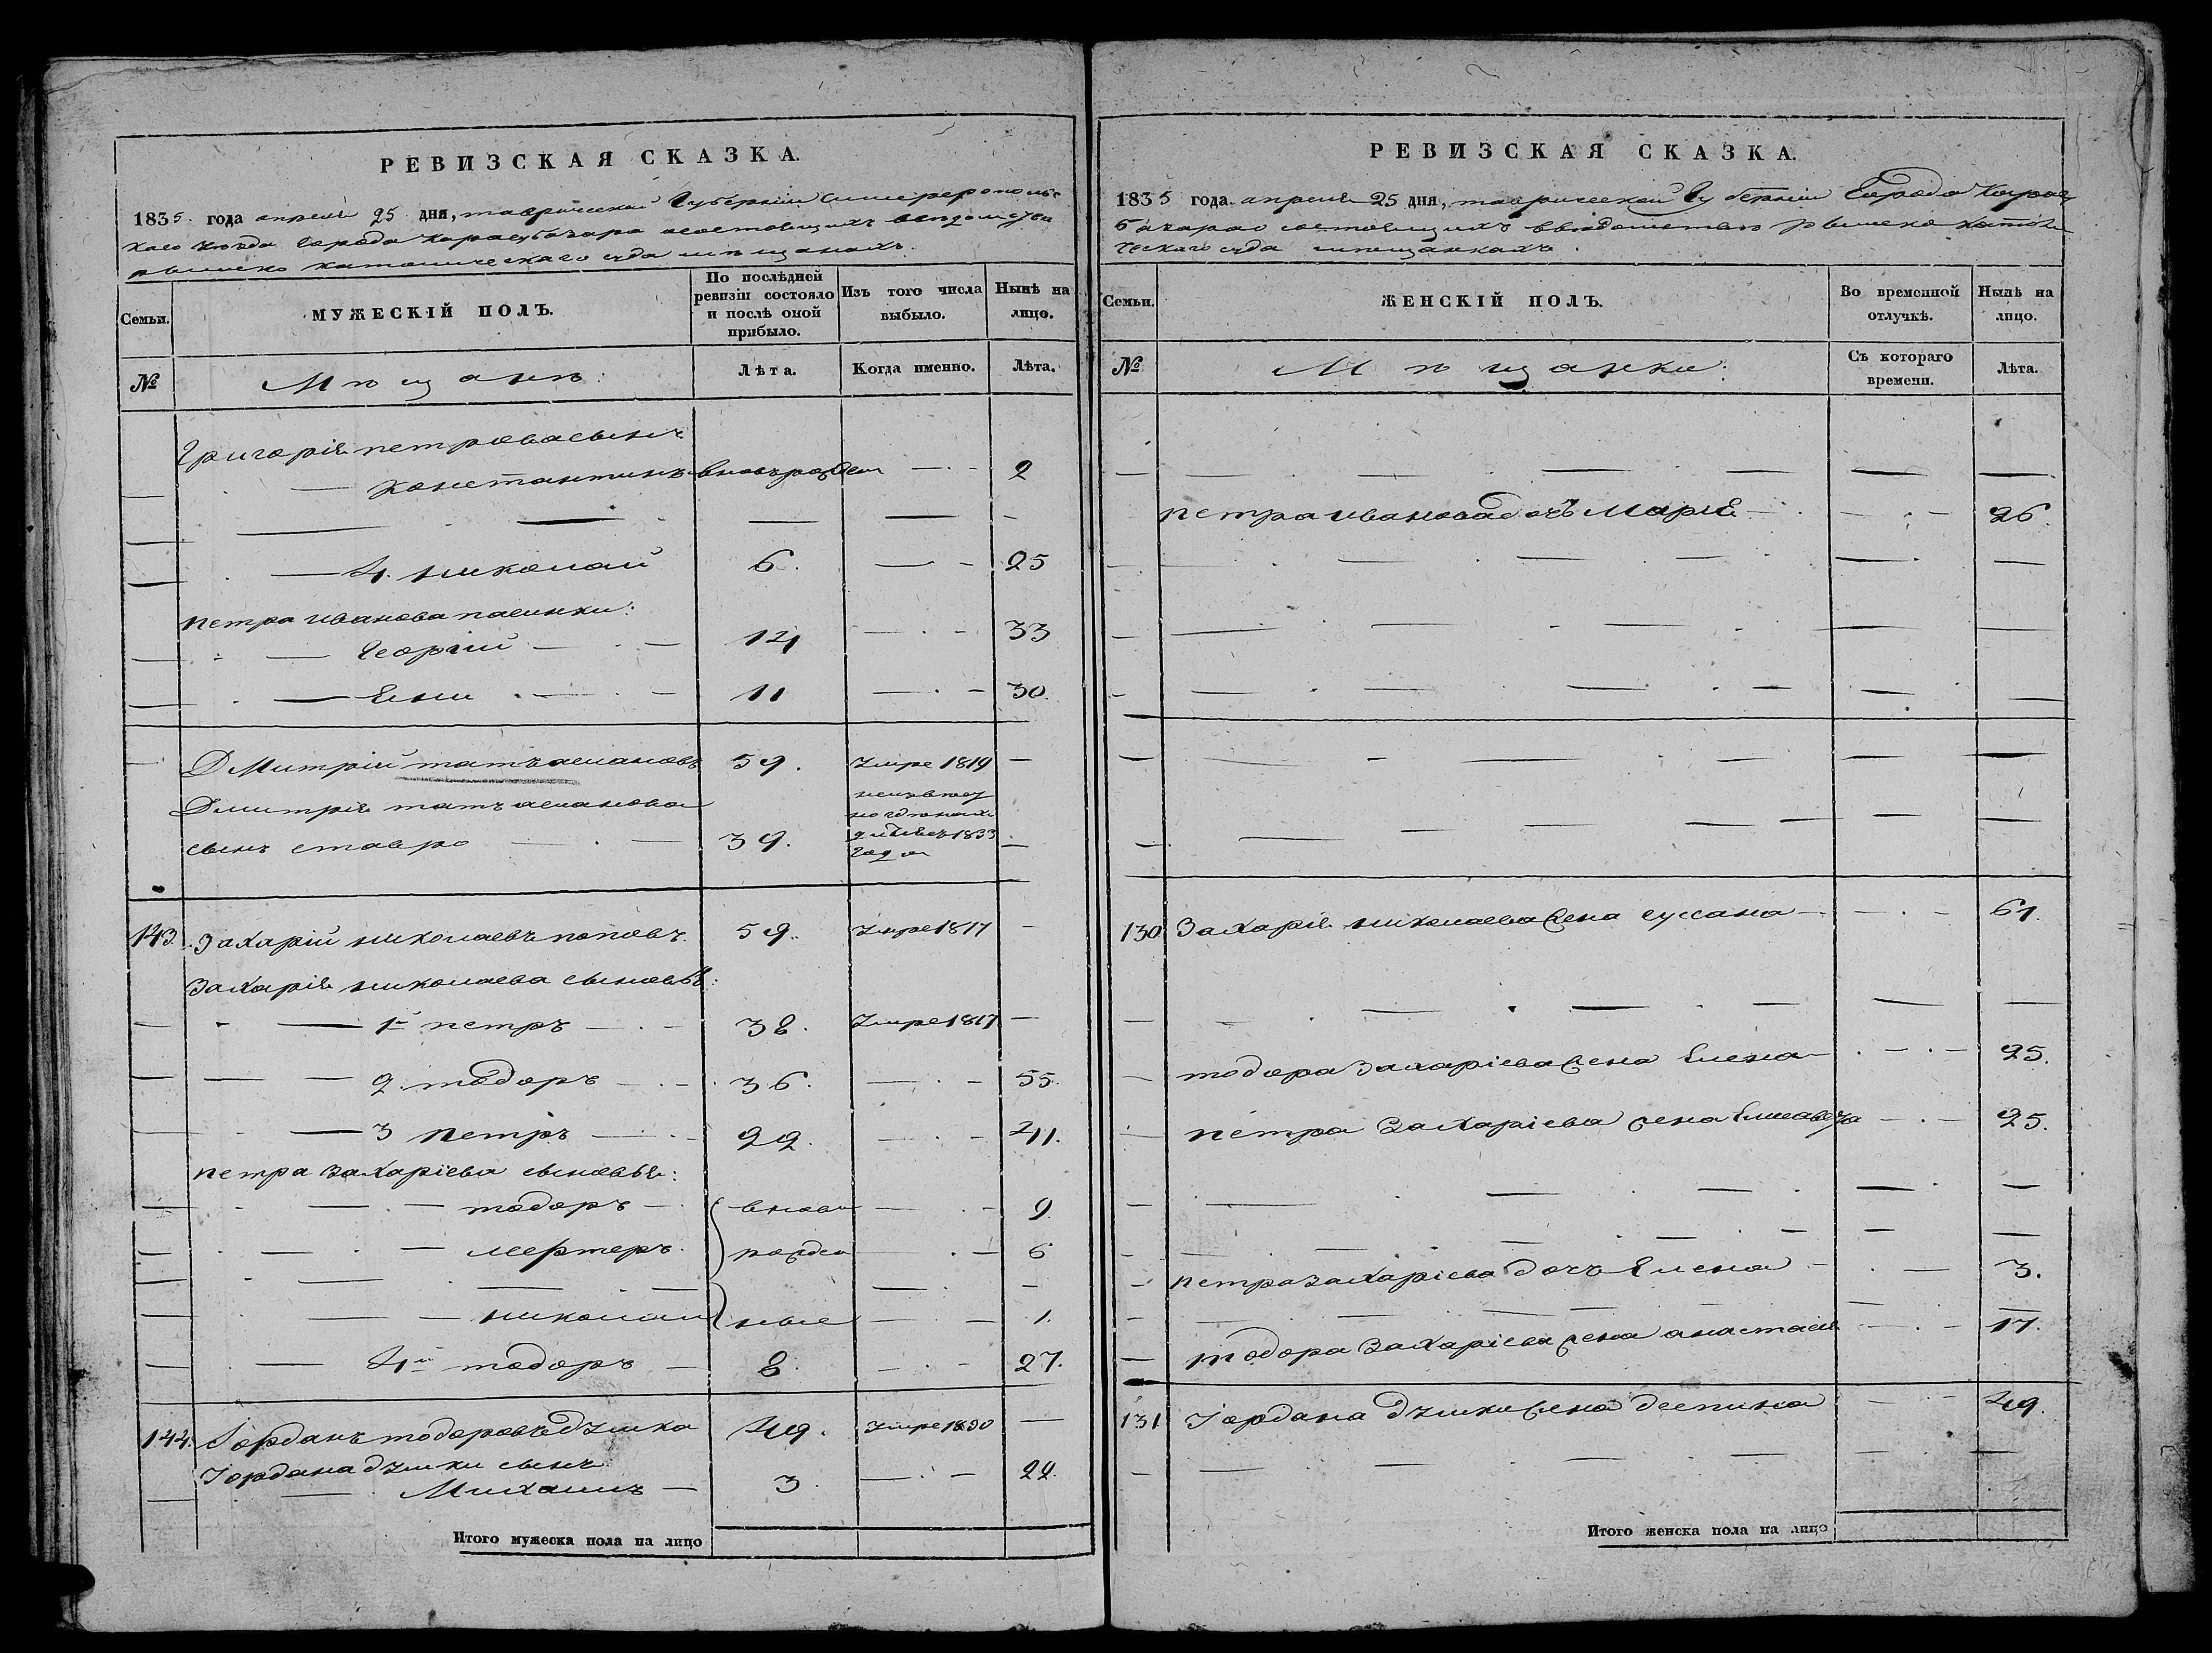 РЕВИЗСКАЯ СКАЗКА.
1835. года апреля 25 дня, таврической Губернии Симферопольс
каго уезда Города Карасубазара о состоящихъ ведомства
римско католическаго суда мещанахъ.
Семьи.
МУЖЕСКІЙ ПОЛЪ.
По послѣдней ревизіи состояло и послѣ оной прибыло.
Изъ того числа выбыло.
Нынѣ на лицо.
№
Мѣщане:
Лѣта.
Когда именно.
Лѣта.
Григорія петрова сынъ
— константинъ вновь рожден — 2
— 4. николай 6. — 25
петра иванова пасинки:
— Георгій — 14 — 33
— 11 — 30.
Дмитрій 59. Умре 1819 —
Дмитрія
сынъ ставро 39. 1833 года —
143. Захарій николаевъ поповъ. 59. Умре 1817 —
Захарія николаева сыновья:
— 1й петръ — 38. Умре 1817 —
— 2. тодоръ — 36. — 55.
— 3 петръ — 22. — 41.
петра захаріева сыновья:
— тодоръ — вновь — 9
— рожден — 6
— николай ные — 1.
— 4й тодоръ — 8. — 27.
144. Іорданъ тодоровъ 49. Умре 1830 —
Іордана сынъ
— Михаилъ — 3 — 22.
Итого мужеска пола на лицо
РЕВИЗСКАЯ СКАЗКА.
1835 года апреля 25 дня, таврической Губерніи Города Карасу
базара о состоящихъ въ ведомстве римско католи
ческаго суда мещанкахъ.
Семьи.
ЖЕНСКІЙ ПОЛЪ.
Во временной отлучкѣ.
Нынѣ на лицо.
№
Мѣщанки:
Съ котораго времени.
Лѣта.
петра иванова дочь Марія — 26.
130 Захарія николаева жена сусана — 61.
тодора Захаріева жена Елена — 25.
петра Захаріева жена Елисавета — 25.
петра захаріева дочь Елена — 3.
тодора Захаріева жена анастасія — 17.
131 Іордана жена деспина — 49.
Итого женска пола на лицо